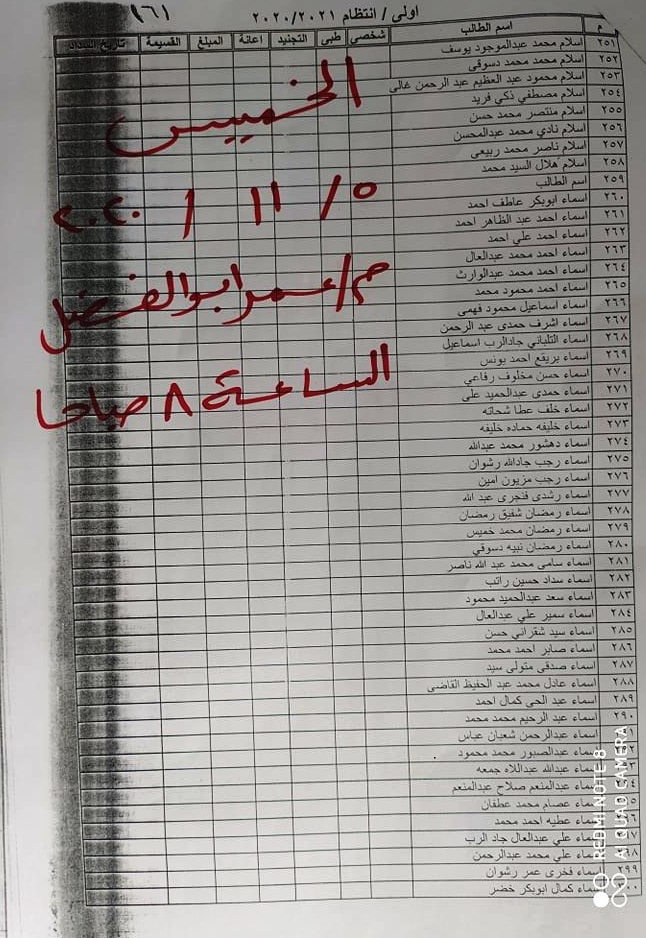 اولى / انتظام ٢٠٢٠/٢٠٢١
(٦١)
م اسم الطالب شخصي طبى التجنيد اعانة المبلغ القسيمة تاريخ السداد
٢٥١ اسلام محمد عبدالموجود يوسف
٢٥٢ اسلام محمد محمد دسوقى
٢٥٣ اسلام محمود عبد العظيم عبد الرحمن غالى
٢٥٤ اسلام مصطفي ذكي فريد
٢٥٥ اسلام منتصر محمد حسن
٢٥٦ اسلام نادي محمد عبدالمحسن
٢٥٧ اسلام ناصر محمد ربيعى
٢٥٨ اسلام هلال السيد محمد
٢٥٩ اسم الطالب
٢٦٠ اسماء ابوبكر عاطف احمد
٢٦١ اسماء احمد عبد الظاهر احمد
٢٦٢ اسماء احمد علي احمد
٢٦٣ اسماء احمد محمد عبدالعال
٢٦٤ اسماء احمد محمد عبدالوارث
٢٦٥ اسماء احمد محمود محمد
٢٦٦ اسماء اسماعيل محمود فهمى
٢٦٧ اسماء اشرف حمدى عبد الرحمن
٢٦٨ اسماء التلباني جادالرب اسماعيل
٢٦٩ اسماء بريقع احمد يونس
٢٧٠ اسماء حسن مخلوف رفاعي
٢٧١ اسماء حمدى عبدالحميد على
٢٧٢ اسماء خلف عطا شحاته
٢٧٣ اسماء خليفه حماده خليفه
٢٧٤ اسماء دهشور محمد عبدالله
٢٧٥ اسماء رجب جادالله رشوان
٢٧٦ اسماء رجب مزيون امين
٢٧٧ اسماء رشدى فنجرى عبد الله
٢٧٨ اسماء رمضان شفيق رمضان
٢٧٩ اسماء رمضان محمد خميس
٢٨٠ اسماء رمضان نبيه دسوقي
٢٨١ اسماء سامى محمد عبد الله ناصر
٢٨٢ اسماء سداد حسين راتب
٢٨٣ اسماء سعد عبدالحميد محمود
٢٨٤ اسماء سمير علي عبدالعال
٢٨٥ اسماء سيد شقراني حسن
٢٨٦ اسماء صابر احمد محمد
٢٨٧ اسماء صدقى متولى سيد
٢٨٨ اسماء عادل محمد عبد الحفيظ القاضى
٢٨٩ اسماء عبد الحى كمال احمد
٢٩٠ اسماء عبد الرحيم محمد محمد
اسماء عبدالرحمن شعبان عباس
اسماء عبدالصبور محمد محمود
اسماء عبدالله عبداللاه جمعه
اسماء عبدالمنعم صلاح عبدالمنعم
اسماء عصام محمد عطفان
اسماء عطيه احمد محمد
اسماء علي عبدالعال جاد الرب
اسماء علي محمد عبدالرحمن
٢٩٩ اسماء فخرى عمر رشوان
اسماء كمال ابوبكر خضر
الخميس
٥ / ١١ / ٢٠٢٠
م/عمر ابوالفضل
الساعة ٨ صباحا
REDMI NOTE 8
AI QUAD CAMERA